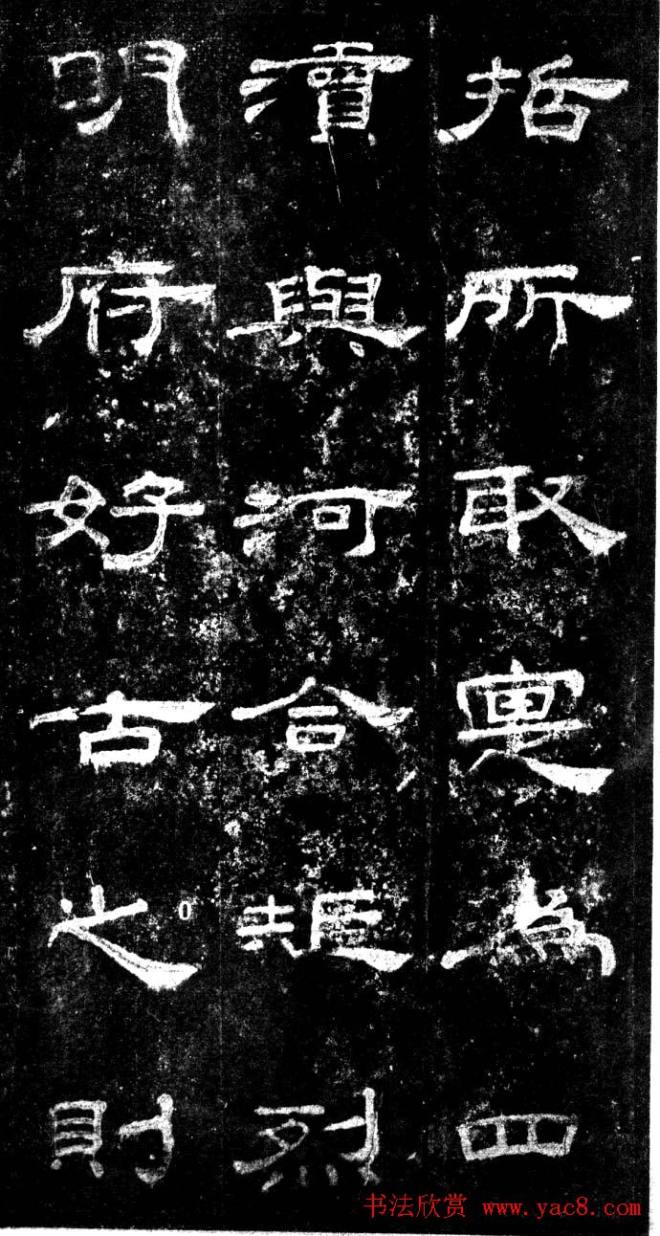 哲所取寔為四
瀆與河合矩烈
明府好古之則
书法欣赏 www.yac8.com